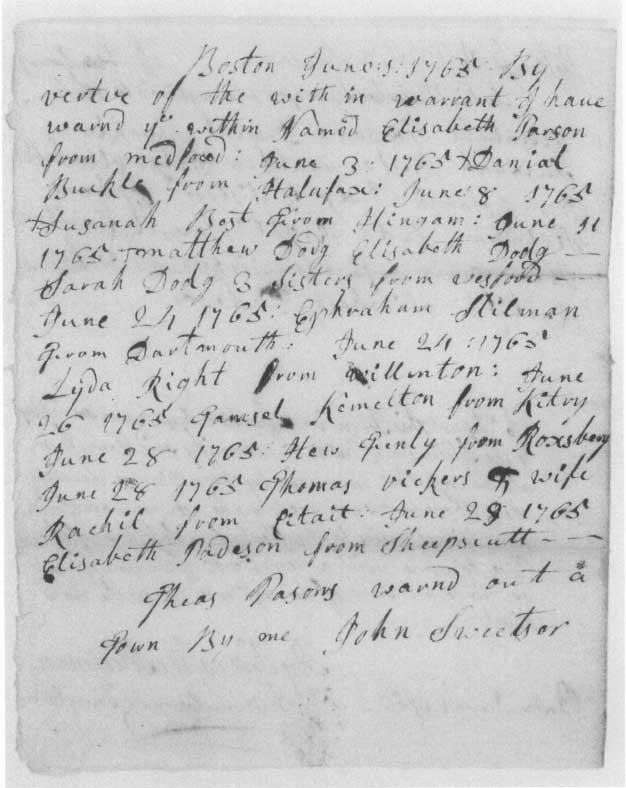 Boston June: 1: 1765 By
vertve of the with in warrant I have
warnd ye within Named Elisabeth Parson
from medford: June 3: 1765 + Danial
Buckle from Halufax: June 8 1765
+ Susanah Best from Hingam: June 11
1765 + matthew Dodg Elisabeth Dodg —
Sarah Dodg 3 Sisters from wesford —
June 24 1765: Ephraham Stilman
from Dartmouth: June 24: 1765
Lyda Right from willinton: June
26 1765 Gamsel Kemelton from Kitry
June 28 1765: Hew Finly from Roxsbery
June 28 1765 Thomas vickers & wife
Rachil from Citait: June 28 1765
Elisabeth Padeson from Sheepscutt - —
Theas Pasons warnd out a
Town By me John Sweetsor